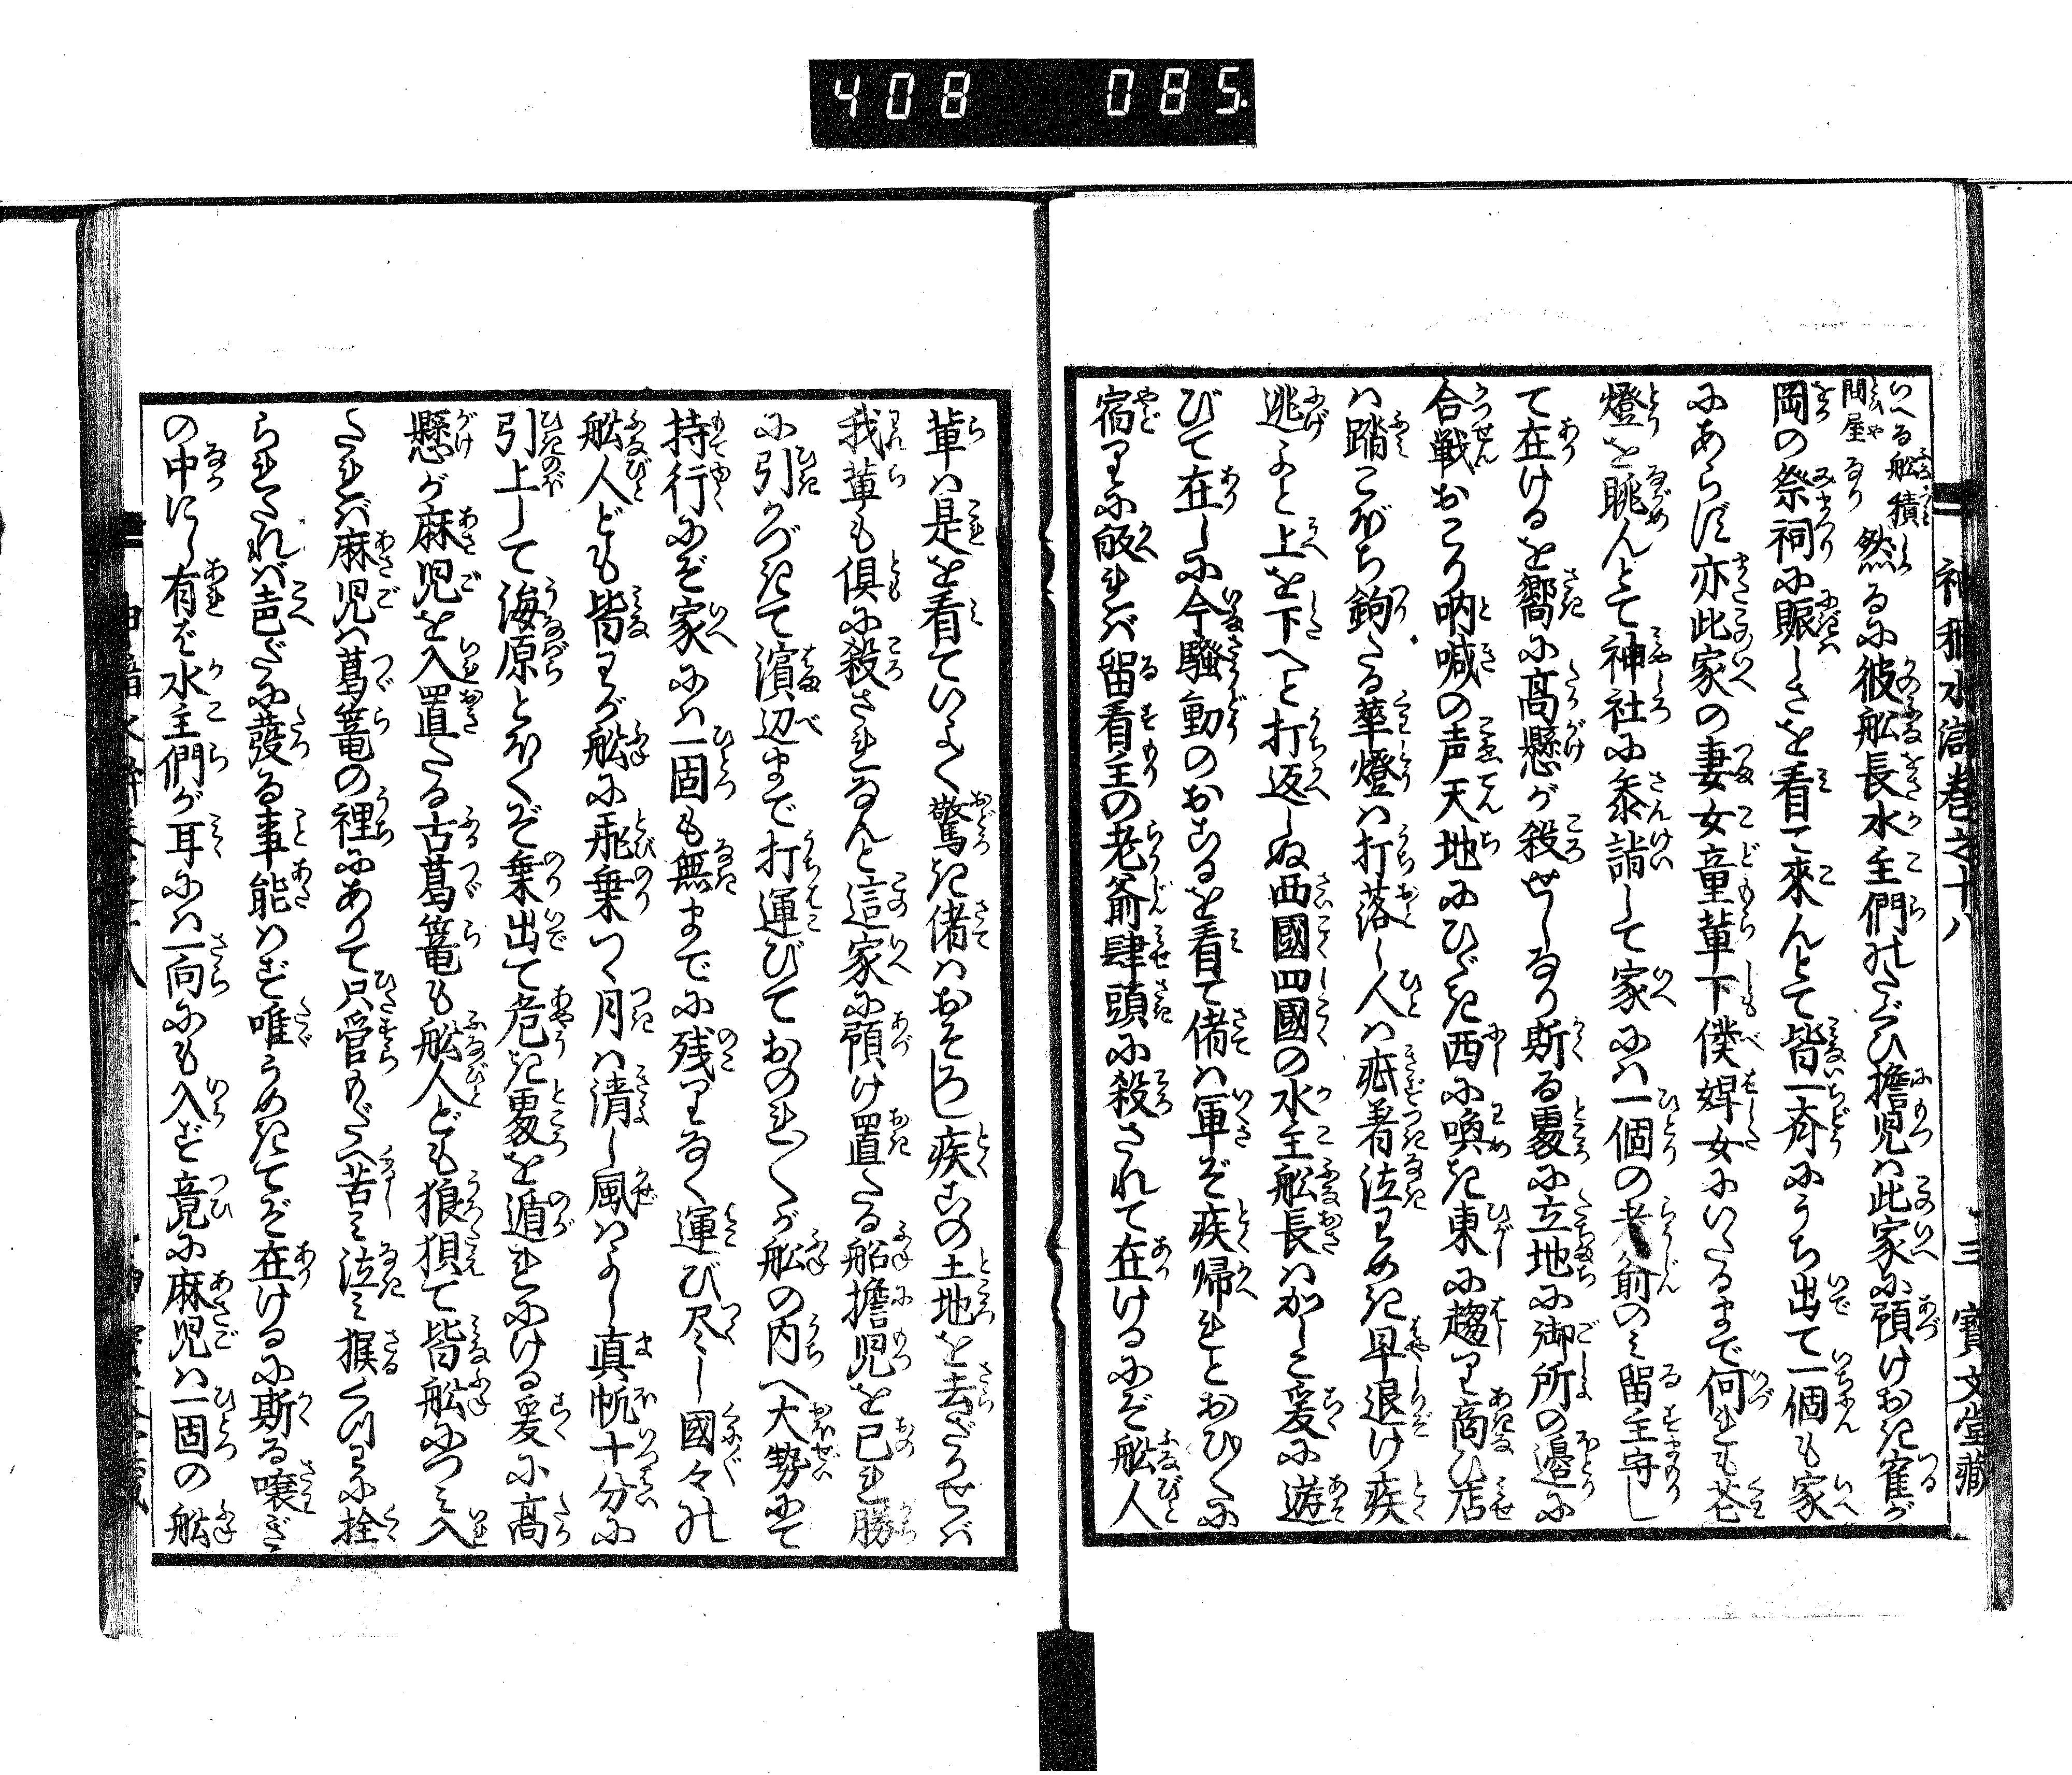 408 085.
神稲水滸巻之十八 三 寶文堂藏
いへる舩積し
問屋なり 然るに彼舩長水主們のたぐひ擔児は此家に預けおき寉が
岡の祭祠に賑しさを看て來んとて皆一斉にうち出て一個も家
にあらず亦此家の妻女童輩下僕婢女にいたるまで何れも花
燈を眺んとて神社に參詣して家には一個の老翁のミ留主守し
て在けるを嚮に高懸が殺せしなり斯る処に立地に御所の邉に
合戦おこり吶喊の声天地にひゞき西に喚き東に趨り商ひ店
は踏こぼち鉤たる華燈は打落し人は疵着泣わめき早退け疾
逃よと上を下へと打返しぬ西國四國の水主舩長はかしこ爰に遊
びて在しに今騒動のおこるを看て偖は軍ぞ疾帰れとおひ〱に
宿りに皈れば留看主の老爺肆頭に殺されて在けるにぞ舩人
輩は是を看ていよ〱驚き偖はおそろし疾この土地を去ざらせば
我輩も倶に殺されなんと這家に預け置たる船擔児を己れ勝
に引かづきて濵辺まで打運びておのれ〱が舩の内へ大勢にて
持行にぞ家には一固も無までに残りなく運び尽し國々の
舩人ども皆わが舩に飛乗つゝ月は清し風はよし真帆十分に
引上して海原とほくぞ乗出て危き処を遁れにける爰に高
懸が麻児を入置たる古葛篭も舩人ども狼狽て皆舩につミ入
たれば麻児は葛篭の裡にありて只管もだへ苦ミ泣ミ猴ぐつわに拴
られたれば声だに發る事能はず唯うめきてぞ在けるに斯る噪ぎ
の中にし有ば水主們が耳には一向にも入ず竟に麻児は一固の舩